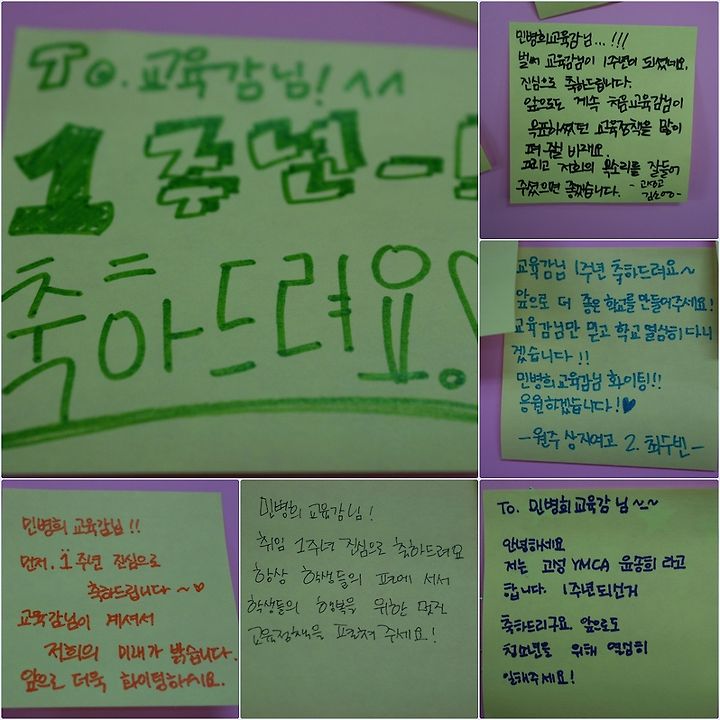 To. 교육감님! ^^
1주년
축하드려요!
민병희교육감님...!!!
벌써 교육감님이 1주년이 되셨네요.
진심으로 축하드립니다.
앞으로도 계속 처음 교육감님이
목표하셨던 교육정책을 많이
펴 주길 바래요.
그리고 저희의 목소리를 잘들어
주셨으면 좋겠습니다.
교육감님 1주년 축하드려요~
앞으로 더 좋은 학교를 만들어주세요!
교육감님만 믿고 학교 열심히 다니
겠습니다!!
민병희교육감님 화이팅!!
응원하겠습니다!♥
-원주 상지여고 2. 최수빈-
민병희 교육감님!!
먼저, 1주년 진심으로
축하드립니다~♡
교육감님이 계셔서
저희의 미래가 밝습니다.
앞으로 더욱 화이팅하시요.
민병희 교육감님!
취임 1주년 진심으로 축하드려요
항상 학생들의 편에 서서
학생들의 행복을 위한 멋진
교육정책을 펼쳐 주세요!
To. 민병희교육감님~~
안녕하세요
저는 고성 YMCA 윤송희 라고
합니다. 1주년되신거
축하드리구요. 앞으로도
청소년을 위해 열심히
일해주세요!